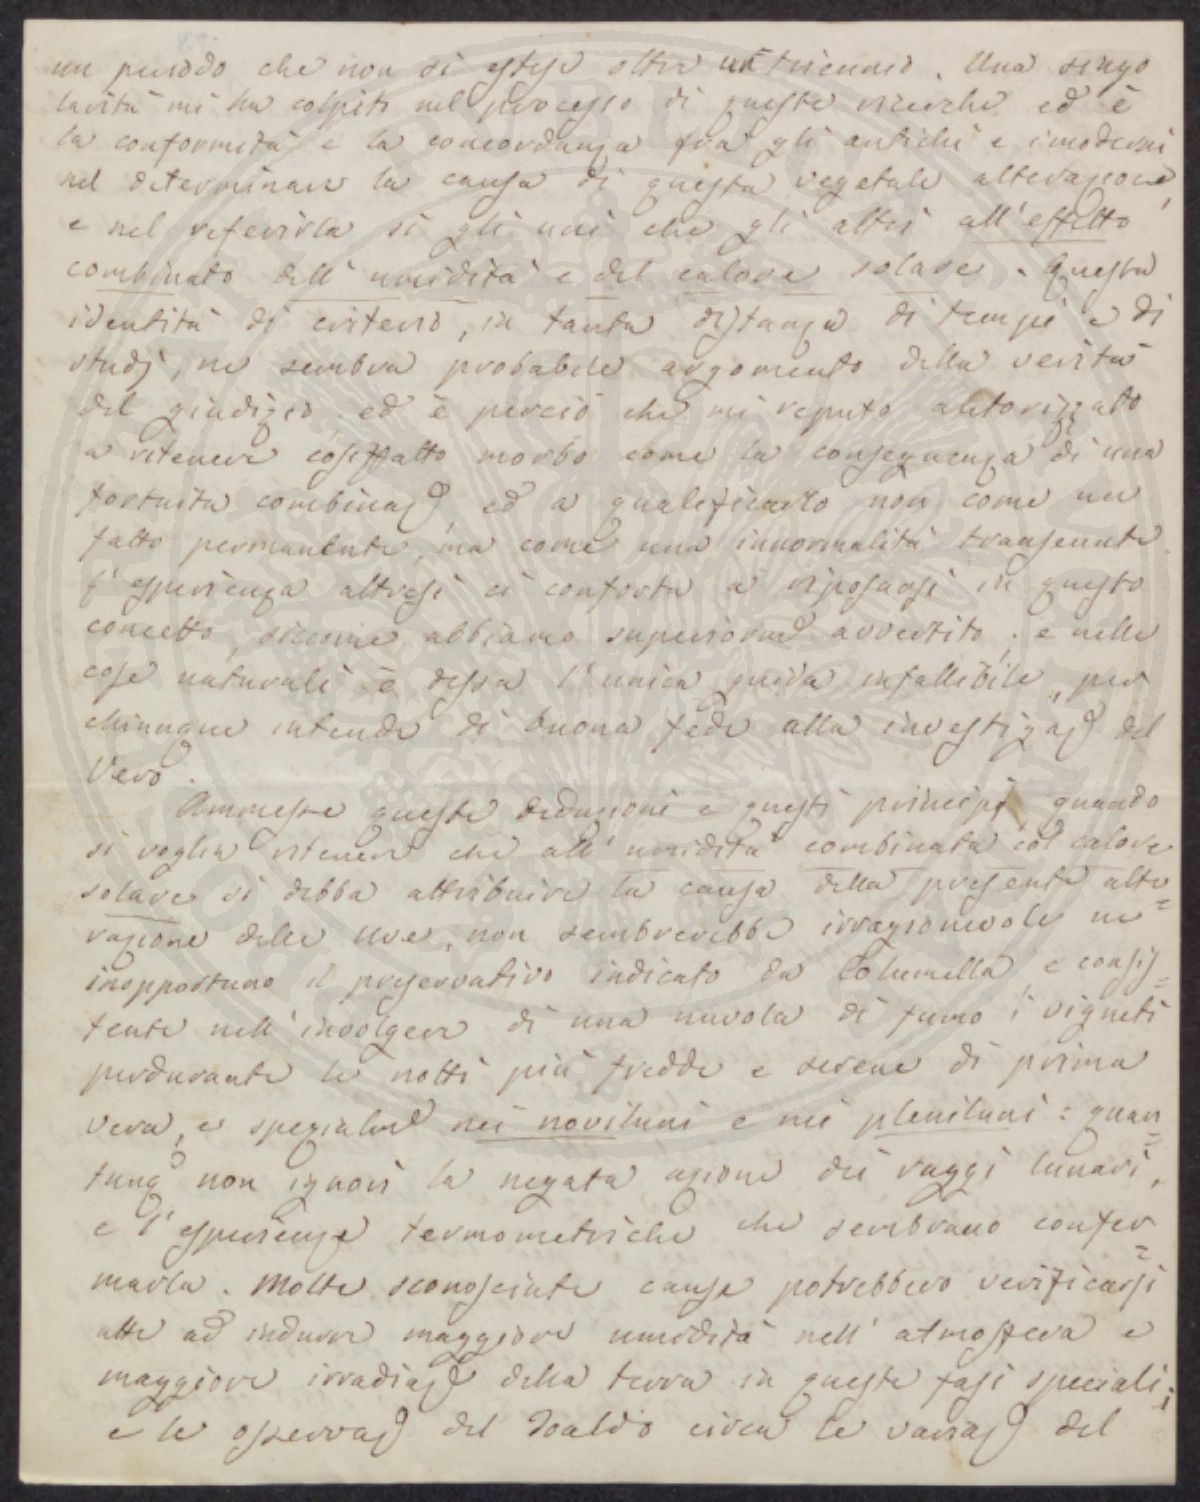 un periodo che non si estese oltre un triennio. Una singo
larità mi ha colpito nel processo di queste ricerche ed è
la conformità e la concordanza fra gli antichi e i moderni
nel determinare la causa di questa vegetale alterazione,
e nel riferirla sì gli uni che gli altri all'effetto
combinato dell'umidità e del calore solare. Questa
identità di criterio, in tanta distanza di tempi e di
studj, ne sembra probabile argomento della verità
del giudizio, ed è perciò che mi reputo autorizzato
a ritenere cosiffatto morbo come la conseguenza di una
fortuita combinaz, ed a qualificarlo non come un
fatto permanente, ma come una innormalità transeunte.
L'esperienza altresì ci conforta a riposarsi in questo
concetto, siccome abbiamo superiorm avvertito; e nelle
cose naturali è dessa l'unica guida infallibile, per
chiunque intende di buona fede alla investigaz del
Vero.
Ammesse queste deduzioni e questi principj quando
si voglia ritenere che all'umidità combinata col calore
solare si debba attribuire la causa della presente alte=
razione delle uve, non sembrerebbe irragionevole ne
inopportuno il preservativo indicato da Columella, e consis=
tente nell'involgere di una nuvola di fumo i vigneti
perdurante le notti più fredde e serene di prima
vera, e spezialm nei noviluni e nei pleniluni: quan=
tunq non ignori la negata azione dei raggi lunari,
e l'esperienze termometriche che sembrano confer=
marla. Molte sconosciute cause potrebbero verificarsi
atte ad indurre maggiore umidità nell'atmosfera e
maggiore irradiaz della terra in queste fasi speciali;
e le osservaz del Toaldo circa le variaz del